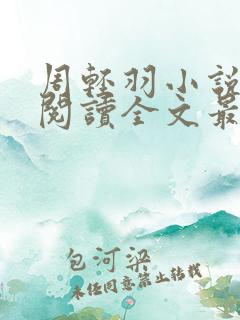 周輕羽小說
閱讀全文最
包河梁
未任同意禁止轉載